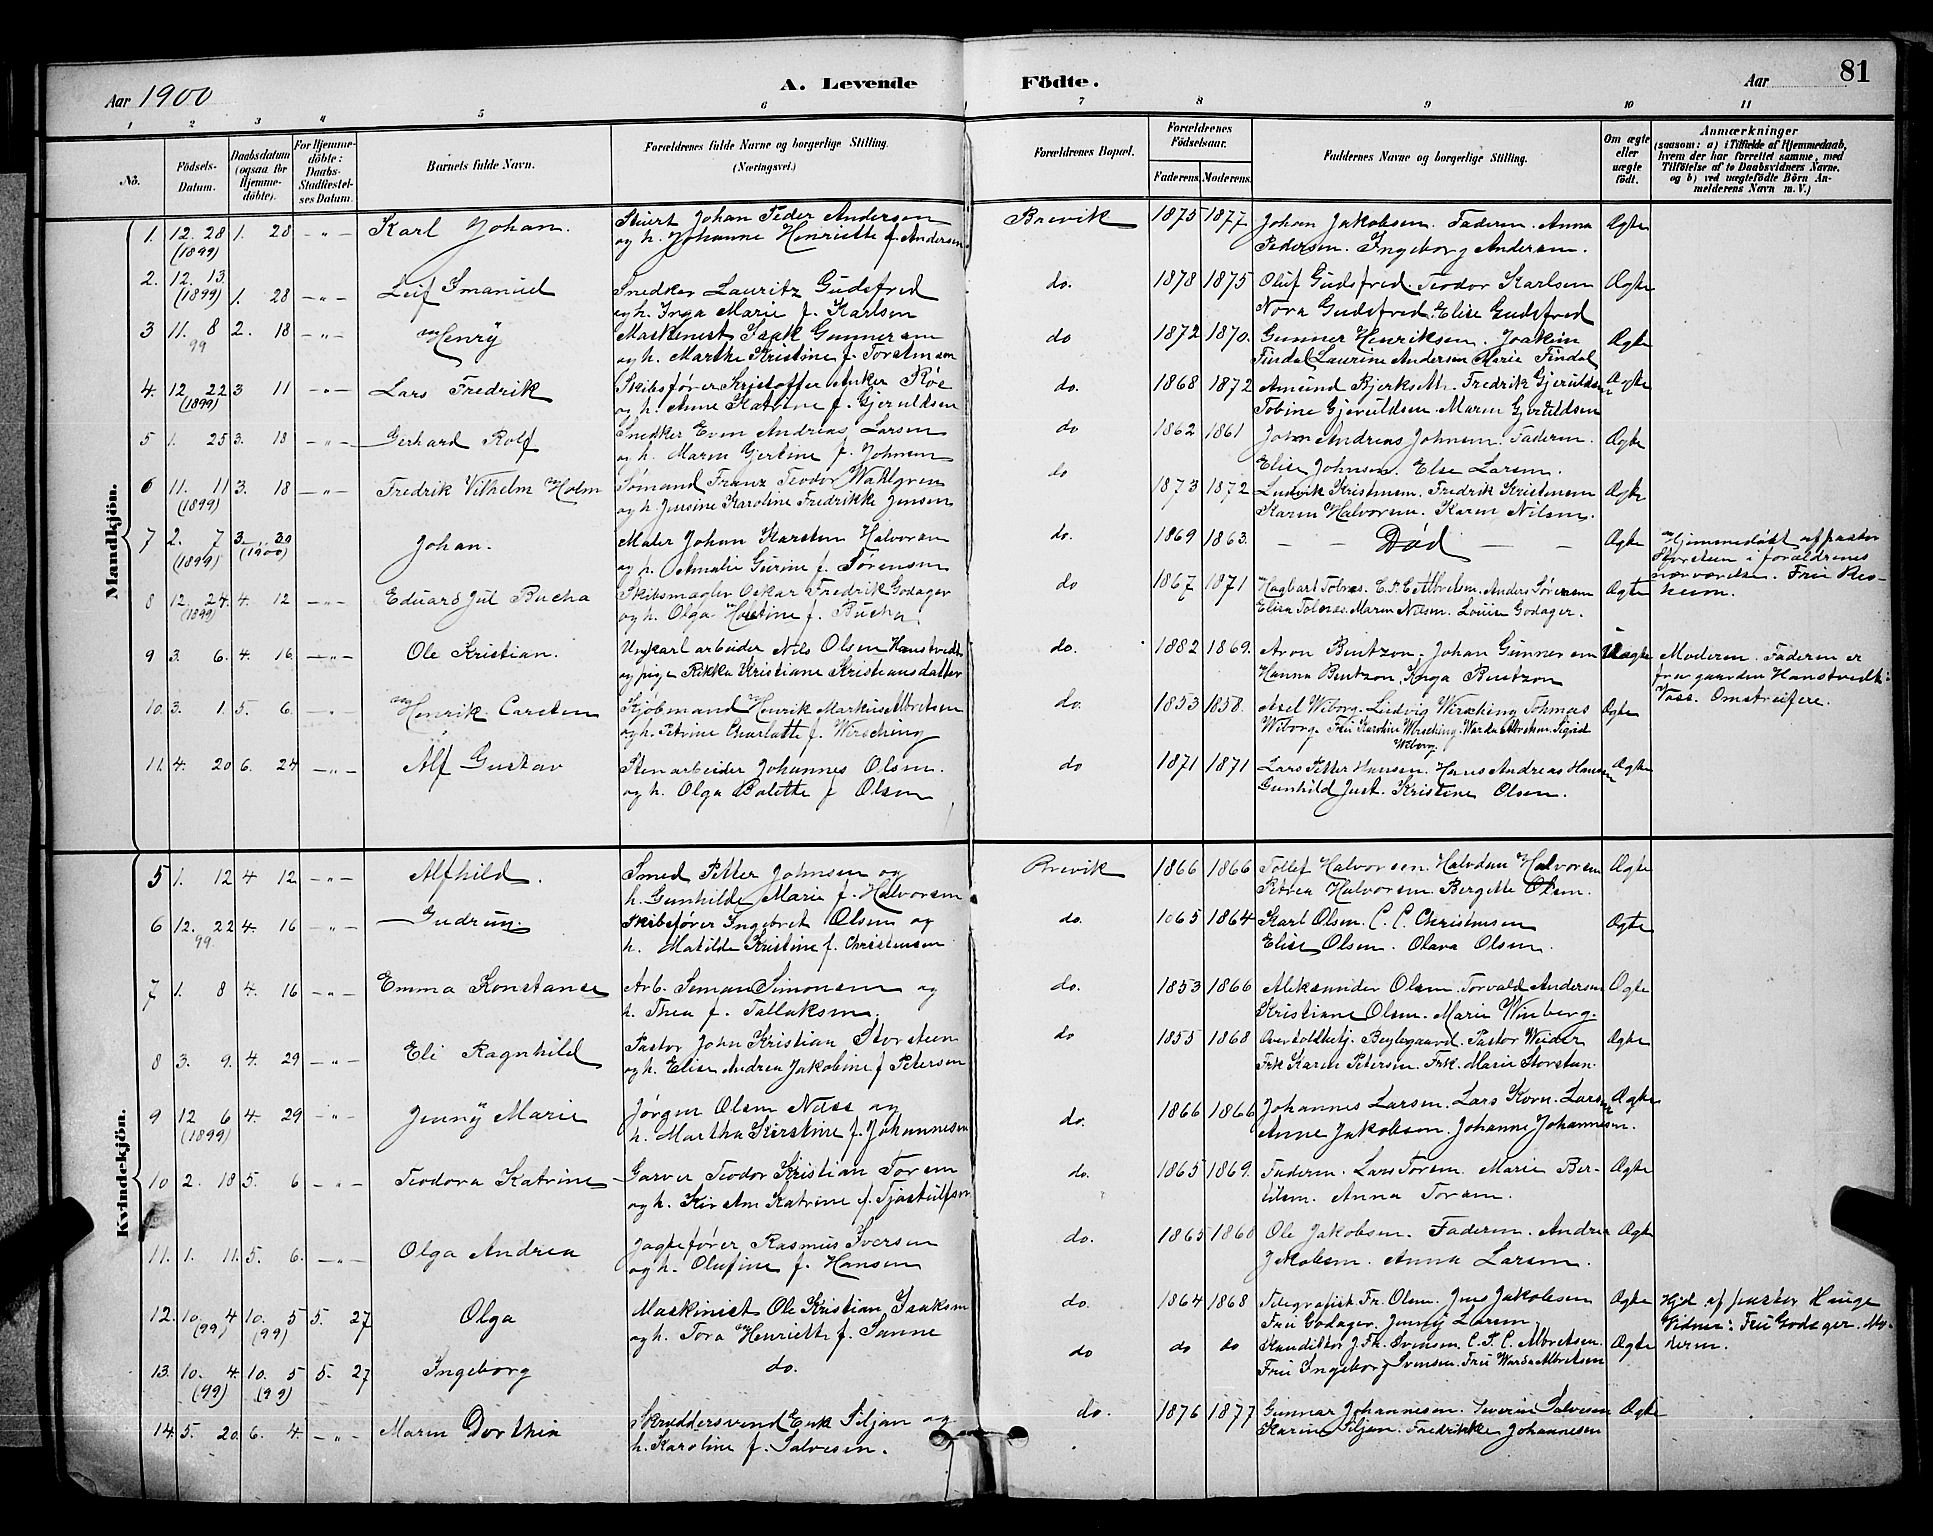 Aar 1900
A. Levende Födte.
Aar 81
1 2 3 4 5 6 7 8 9 10 11
No.
Födsels-Datum.
Daabsdatum (ogsaa for Hjemmedöbte).
For Hjemmedöbte: Daabs-Stadfæstelses Datum.
Barnets fulde Navn.
Forældrenes fulde Navne og borgerlige Stilling. (Næringsvei.)
Forældrenes Bopæl.
Forældrenes Födselsaar.
Faderens. Moderens.
Faddernes Navne og borgerlige Stilling.
Om ægte eller uægte födt.
Anmærkninger (saasom: a) i Tilfælde af Hjemmedaab, hvem der har forrettet samme, med Tilföielse af to Daabsvidners Navne. og b) ved uægtefödte Börn Anmelderens Navn m. V.)
Mandkjön.
1. 12. 28 (1899) 1. 28 -„- Karl Johan. Stuert Johan Peder Andersen Brevik 1875 1877 Johan Jakobsen. Faderen. Anna Ægte
og h. Johanne Henriette f. Andersen. Pedersen. Ingeborg Andersen.
2. 12. 13 (1899) 1. 28 -„- Leif Emanuel Snedker Lauritz Gudsfred do. 1878 1875 Oluf Gudsfred. Teodor Karlsen Ægte
og h. Inga Marie f. Karlsen Nora Gudsfred. Elise Gudsfred
3 11. 8 99 2. 18 -„- Henry Maskinist Isak Gunnersen do 1872 1870. Gunner Henriksen. Joakim Ægte
og h. Marthe Kristine f. Torstensen Findal Laurine Andersen Marie Findal
4. 12 22 (1899) 3 11 -„- Lars Fredrik Skibsfører Kristoffer Anker Röe do. 1868 1872 Amund Bjerkseth. Fredrik Gjeruldsen Ægte
og h. Anne Katrine f. Gjeruldsen Tobine Gjeruldsen. Maren Gjeruldsen
5 1. 25 3. 18 -„- Gerhard Rolf Snedker Even Andreas Larsen do 1862 1861 John Andreas Johnsen. Faderen. Ægte
og h. Maren Gjertine f. Johnsen Elise Johnsen. Else Larsen.
6 11. 11 (1899) 3. 18 -„- Fredrik Vilhelm Holm Sømand Franz Teodor Wahlgren do 1873 1872 Ludvik Kristensen. Fredrik Kristensen Ægte
og h. Jensine Karoline Fredrikke Jensen Karen Halvorsen. Karen Nilsen.
7 2. 7 (1899) 3. 30 (1900) Johan. Maler Johan Karsten Halvorsen do. 1869 1863. - - Död - - Ægte Hjemmedøbt af pastor
og h. Amalie Gurine f. Sørensen Storsteen i forældrenes
nærværelse. Fru
8 12. 24. (1899) 4. 12 -„- Eduard Jul Bucha Skibsmægler Oskar Fredrik Godager do 1867 1871 Hagbart Tolnæs. C. P. C. Albretsen. Anders Sørensen Ægte
og h. Olga Hostine f. Bucha Elisa Tolnæs. Maren Nilsen. Louise Godager.
9 3. 6. 4. 16. -„- Ole Kristian. Ungkarl arbeider Nils Olsen Hanstvedt do. 1882 1869. Aron Bentzon. Johan Gunnersen Uægte Moderen. Faderen er
og pige Rikka Kristiane Kristiansdatter Hanna Bentzon. Inga Bentzon fra gaarden Hanstvedt:
Voss. Omstreifere.
10. 3. 1. 5. 6. -„- Henrik Carsten Kjøbmand Henrik Markus Albretsen do. 1853 1858. Axel Wiborg. Ludvig Wirsching. Tohmas Ægte
og h. Petrine Charlotte f. Wirsching Wiborg. Frü Karoline Wirsching. Warda Albretsen. Sigrid
Wiborg.
11. 4. 20 6. 24 -„- Alf Gustav Stenarbeider Johannes Olsen. do 1871 1871 Lars Petter Hansen. Hans Andreas Hansen Ægte
og h. Olga Bolette f Olsen Gunhild Just. Kristine Olsen.
Kvindekjön.
5 1. 12 4 12 -„- Alfhild. Smed Petter Johnsen og Brevik 1866 1866 Tollef Halvorsen. Halvdan Halvorsen Ægte
h. Gunhilde Marie f. Halvorsen Petrea Halvorsen. Bergitte Olsen.
6 12. 22 99. 4. 16 -„- Gudrun Skibsfører Ingebret Olsen og do. 1865 1864 Karl Olsen. C. C. Christensen Ægte
h. Matilde Kristine f. Christensen Elise Olsen. Olava Olsen.
7 1. 8 4. 16 -„- Emma Konstanse Arb. Simon Simonsen og do. 1853 1866 Aleksander Olsen. Torvald Andersen Ægte
h. Thea f. Tallaksen. Kristiane Olsen. Marie Winberg.
8 3. 9. 4. 29 -„- Eli Ragnhild Pastor John Kristian Storsteen do 1855 1868 Overtoldbetj. Beylegaard. Pastor Weider Ægte
og h. Elise Andrea Jakobine f Petersen Frk Karen Petersen. Frk. Marie Storsteen.
9 12 6 (1899) 4. 29 -„- Jenny Marie Jørgen Olsen Næss og do. 1866 1866 Johannes Larsen. Lars Korn. Larsen Ægte
h. Martha Kirstine f. Johannesen Anne Jakobsen. Johanne Johannesen.
10 2. 18 5. 6 -„- Teodora Katrine Garver Teodor Kristian Toresen do. 1865 1869. Faderen. Lars Toresen. Marie Ber- Ægte
og h. Katrine f. Tjøstulfsen tilsen. Anna Toresen.
11. 1. 11. 5. 6. -„- Olga Andrea Jagtefører Rasmus Iversen do. 1865 1868 Ole Jakobsen. Faderen. Andrea Ægte
og h. Olufine f. Hansen Jakobsen. Anna Larsen.
12. 10. 4 (99) 10. 5 (99) 5. 27 Olga Maskinist Ole Kristian Isaksen do. 1864 1868 Telegrafist Fr. Olsen. Jens Jakobsen Ægte Hjd. af pastor Hauge
og h. Tora Henriette f. Sanne Frü Godager. Jenny Larsen Vidner: Frü Godager. Mo-
deren.
13. 10. 4. (99) 10. 5 (99) 5. 27 Ingeborg do. do do do Kanditor J. Fr. Svensen. C. P. C. Albretsen. Ægte
Frü Ingeborg Svensen. Frü Warda Albretsen
14. 5. 20. 6. 4. -„- Maren Dorthea Skræddersvend Enk Siljan og do. 1876 1877 Gunnar Johannesen. Severin Salvesen Ægte
h. Karoline f. Salvesen. Karine Siljan. Fredrikke Johannesen